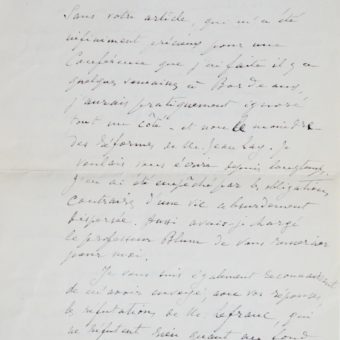 Sans votre article, qui m'a été
infiniment précieux pour une
Conférence que j'ai faite il y a
quelques semaines à Bordeaux,
j'aurais pratiquement ignoré
tout un côté - et non le moindre
des réformes de M. Jean Zay. Je
voulais vous écrire depuis longtemps.
J'en ai été empêché par les obligations
contraires d'une vie absurdement
dispersée. Aussi avais-je chargé
le professeur Blum de vous remercier
pour moi.
Je vous suis également reconnaissant
de m'avoir envoyé, avec vos réponses,
la réfutation de M. Lefranc, qui
ne réfutent rien quant au fond